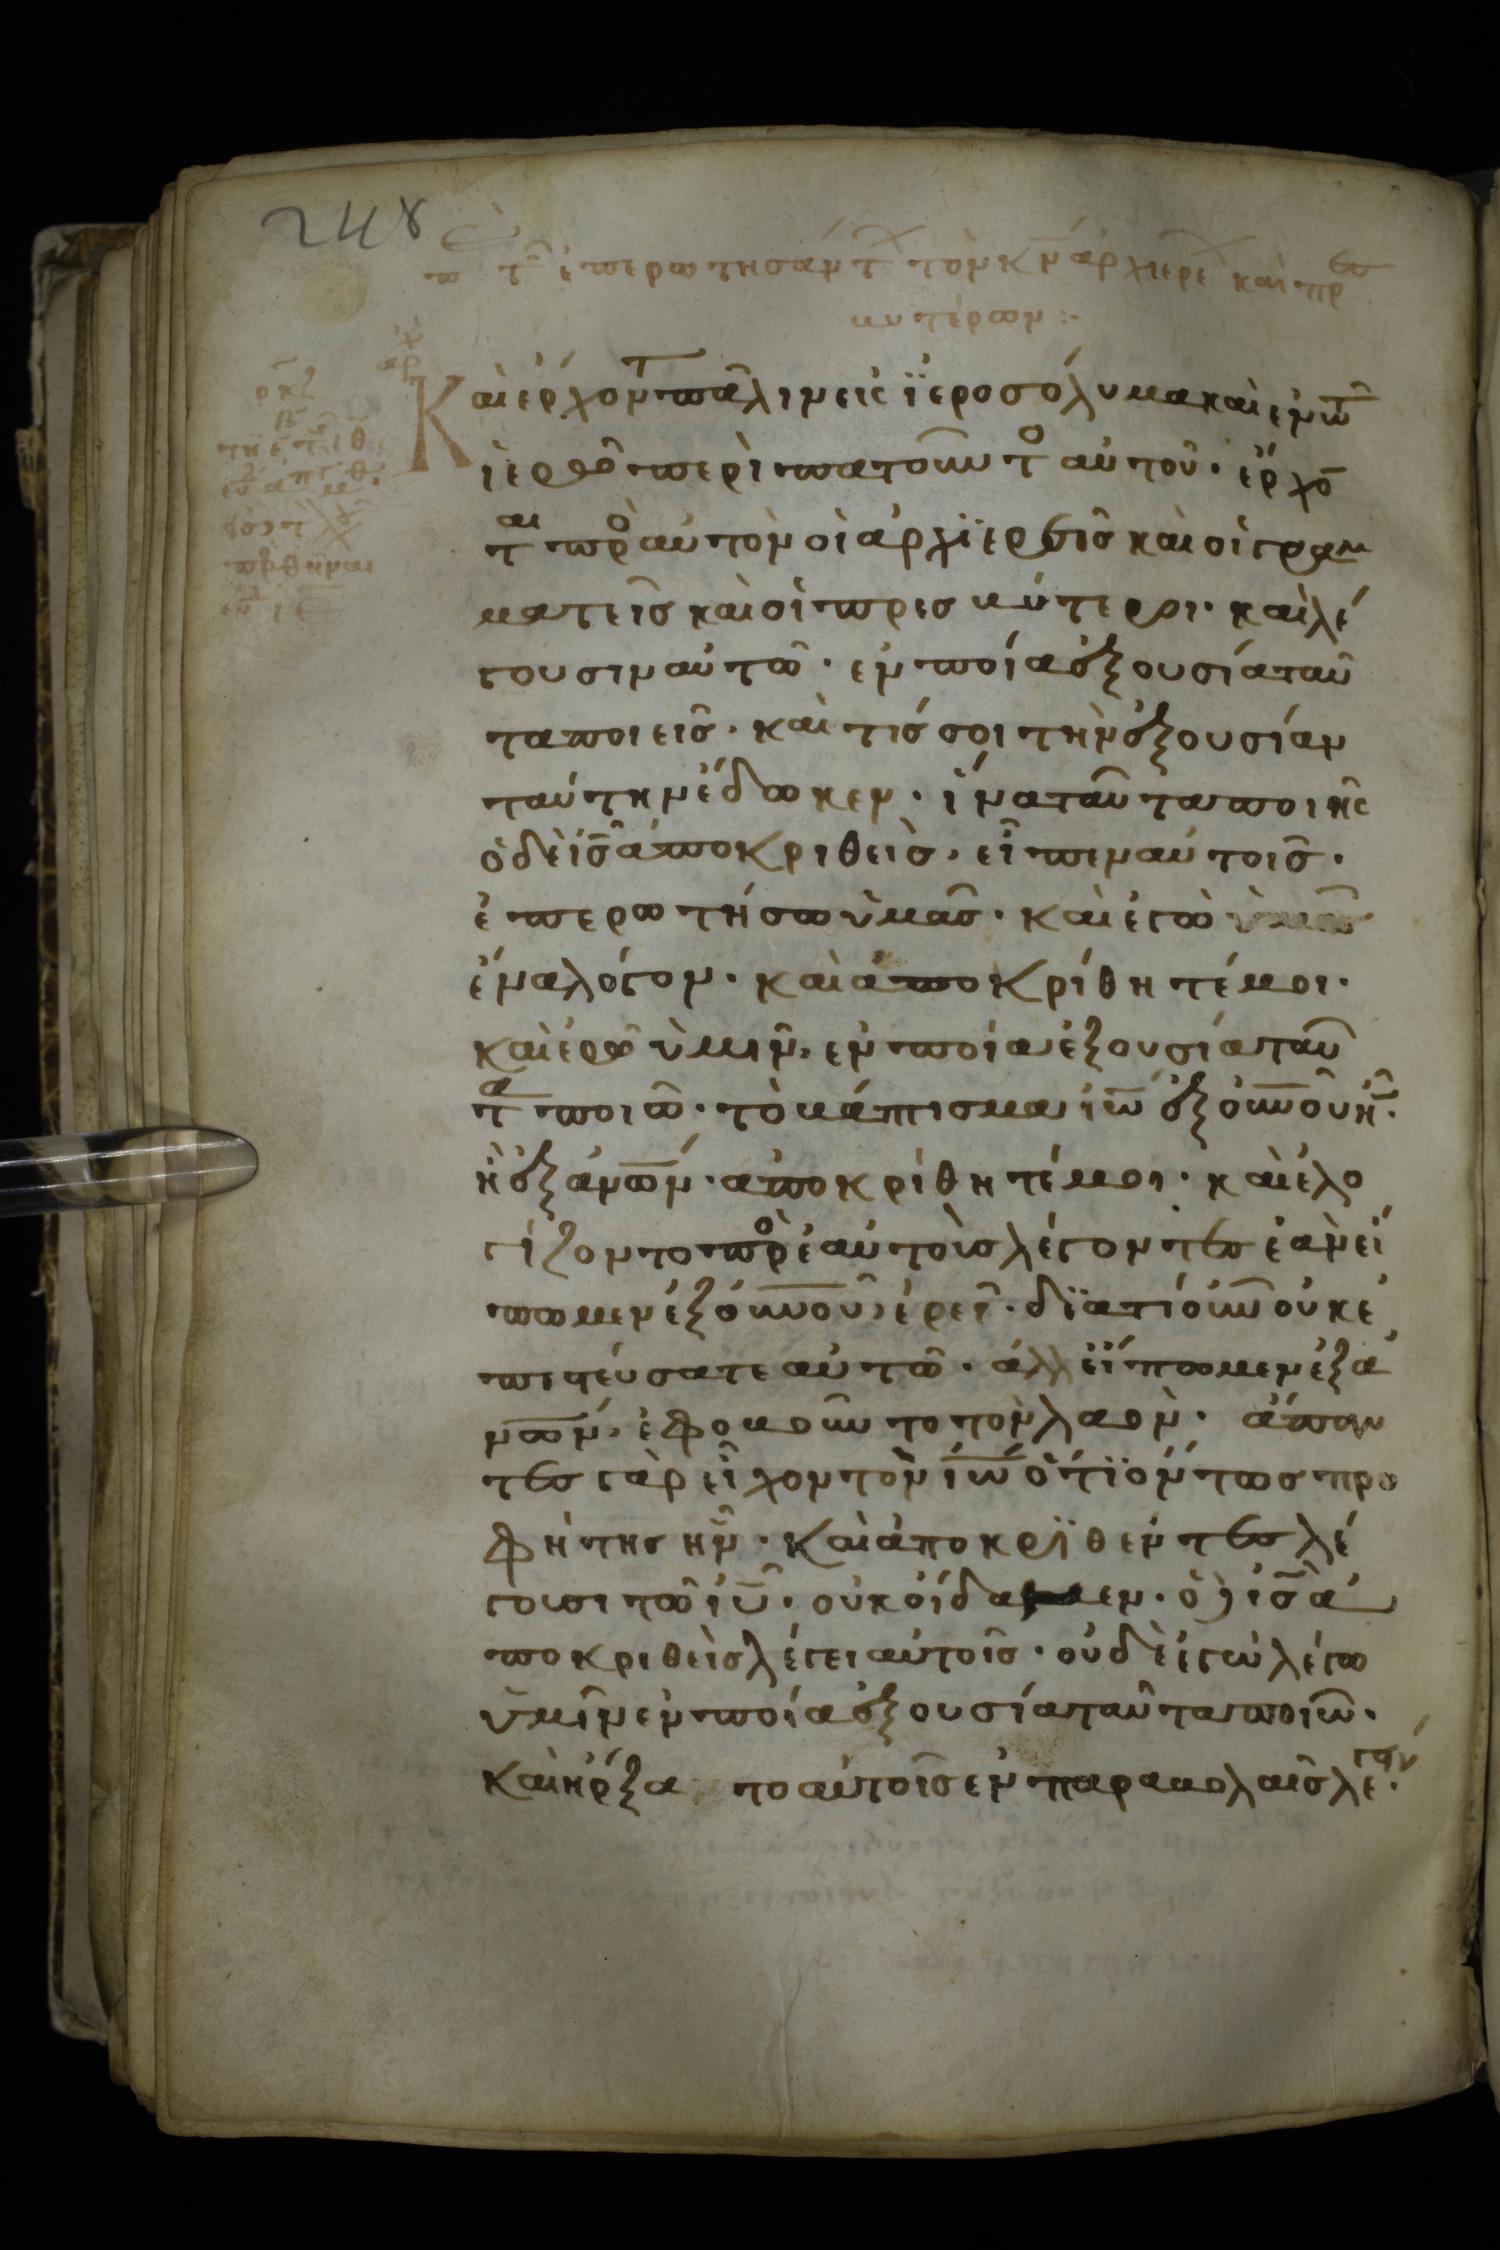 248
π τ ἐπερωτησάντ τὸν κν ἀρχιερε καὶ πρ
βυτέρων :-
Καὶ ἐρχοντ πάλιν εἰς ϊεροσόλυμα καὶ ἐν τῶ
ἱερῶ περὶπατοῦντ αὐτοῦ· ἔρχον
ται πρὸ αὐτὸν οἱ ἀρχϊερεῖς καὶ οἱ γραμ
ματεῖς καὶ οἱ πρεσβύτεροι· καὶ λέ
γουσιν αὐτῶ· ἐν ποία ἐξουσία ταῦ
τα ποιεῖς· καὶ τίς σοι τὴν ἐξουσίαν
ταύτην ἔδωκεν· ἵνα ταῦτα ποιῆς
ὁ δὲ ἰς ἀποκριθεὶς, εἶπεν αὐτοῖς·
ἐπερωτήσω ὑμᾶς· καὶ ἐγὼ ὑμᾶς
ἕνα λόγον· καὶ ἀποκρίθητέ μοι·
καὶ ἐρῶ ὑμῖν, ἐν ποία ἐξουσία ταῦ
τα ποιῶ· τὸ βάπτισμα ἰῶ ἐξ οὐνοῦ ἦν·
ἢ ἐξ ἀνῶν· ἀποκρίθητέ μοι· καὶ ἐλο
γίζοντο πρὸ ἑαυτοὺς λέγοντες ἐὰν εἴ
πωμεν ἐξ οὐνοῦ, ἐρεῖ· δϊατί οὖν οὐκ ἐ
πιστεύσατε αὐτῶ· ἀλλ εἴπωμεν ἐξ ἀ
νῶν, ἐφοβοῦντο τὸν λαὸν· ἅπαν
τες γὰρ εἶχον τὸν ἰῶ ὅτϊ ὄντως προ
φήτης ἦν· καὶ ἀποκρϊθέντες λέ
γουσι τῶ ἰυ· οὐκ οἴδαμεν· ὁ δὲ ἰς ἀ
ποκριθεὶς λέγει αὐτοῖς· οὐδὲ ἐγὼ λέγω
ὑμῖν ἐν ποία ἐξουσία ταῦτα ποιῶ·
καὶ ἤρξατο αὐτοῖς ἐν παραβολαῖς λέγειν·